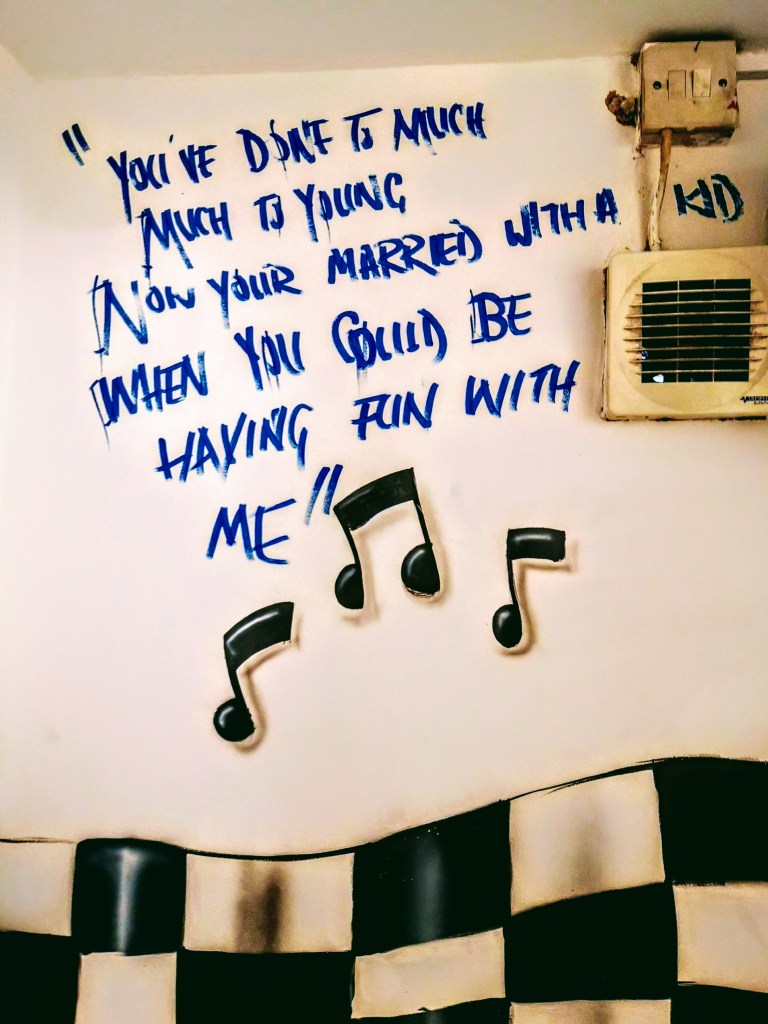 "YOU'VE DONE TO MUCH
MUCH TO YOUNG
NOW YOUR MARRIED WITH A KID
WHEN YOU COULD BE
HAVING FUN WITH
ME"